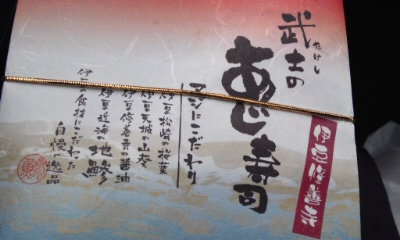 武士の
たけし
あじ寿司
伊豆修善寺
アジにこだわり
伊豆松崎の桜葉
伊豆天城の山葵
伊豆修善寺の醤油
伊豆近海の地鯵
伊豆の食材にこだわった
自慢の逸品